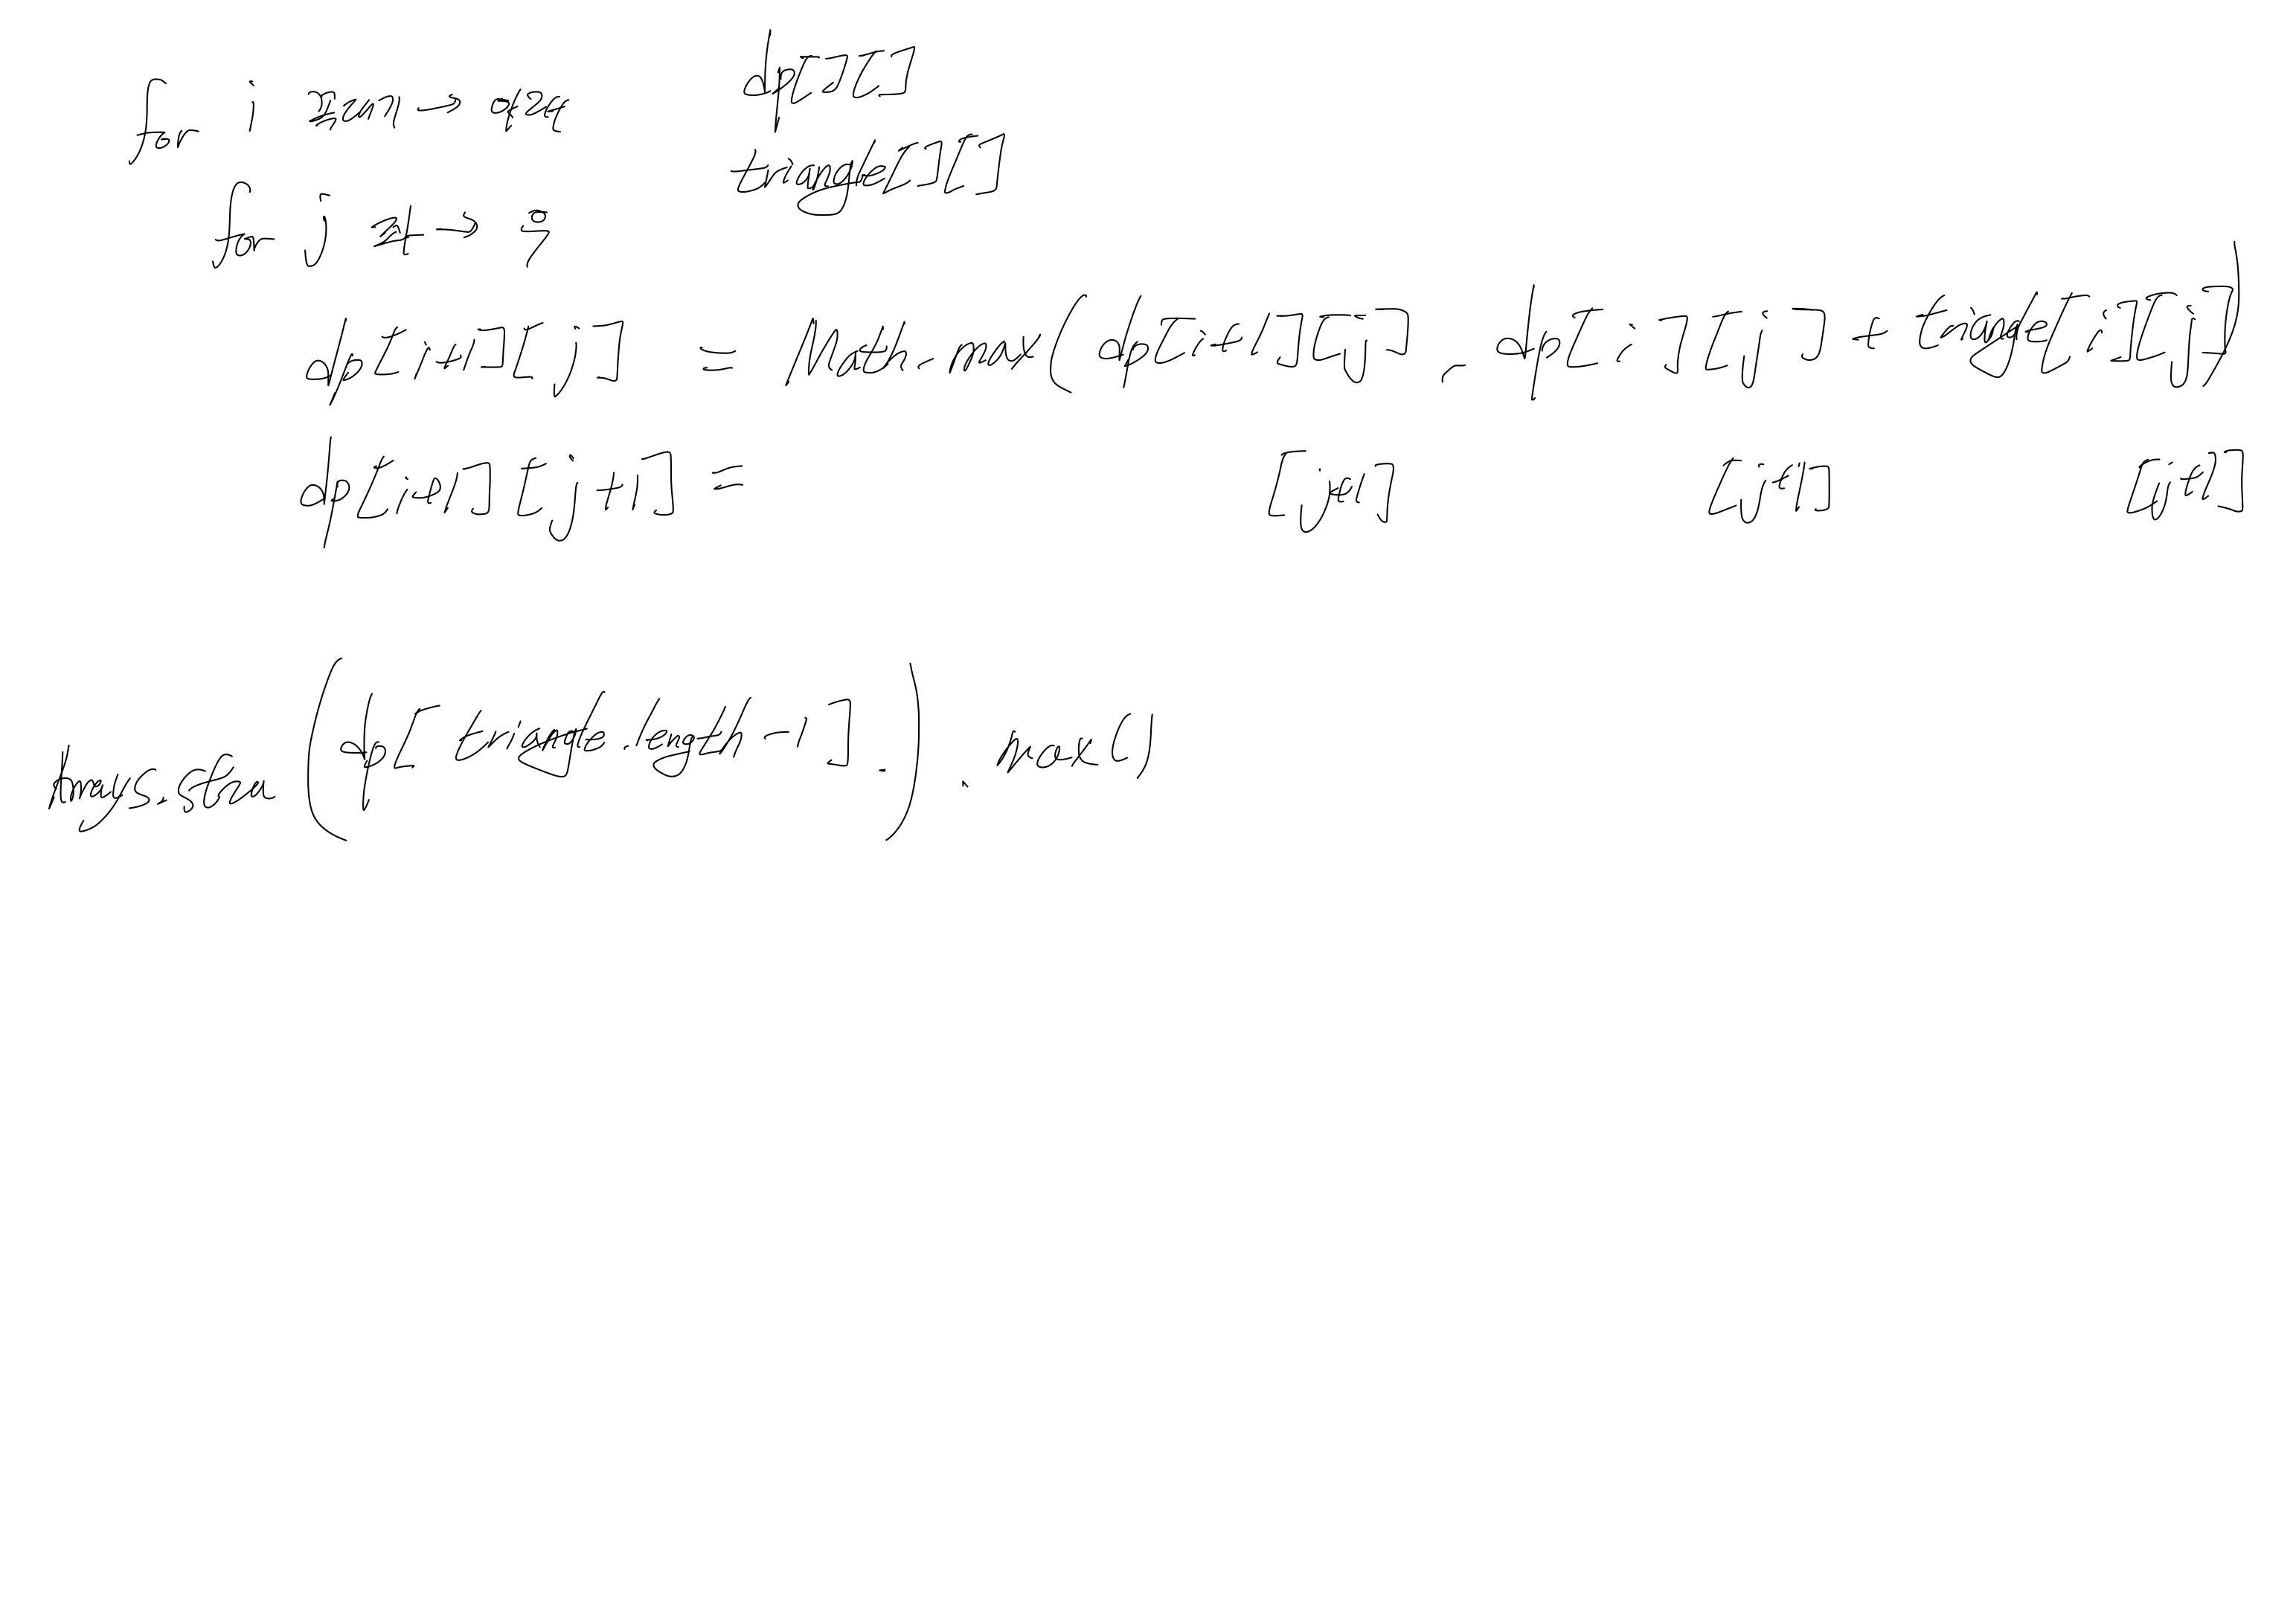 for i 꼭대기 → 아래
dp[][]
triangle[][]
for j 좌 → 우
dp[i+1][j] = Math.max(dp[i+1][j], dp[i][j] + triangle[i][j])
dp[i+1][j+1] = [j+1] [j+1] [j+1]
Arrays.strea(dp[triangle.length-1].).max()